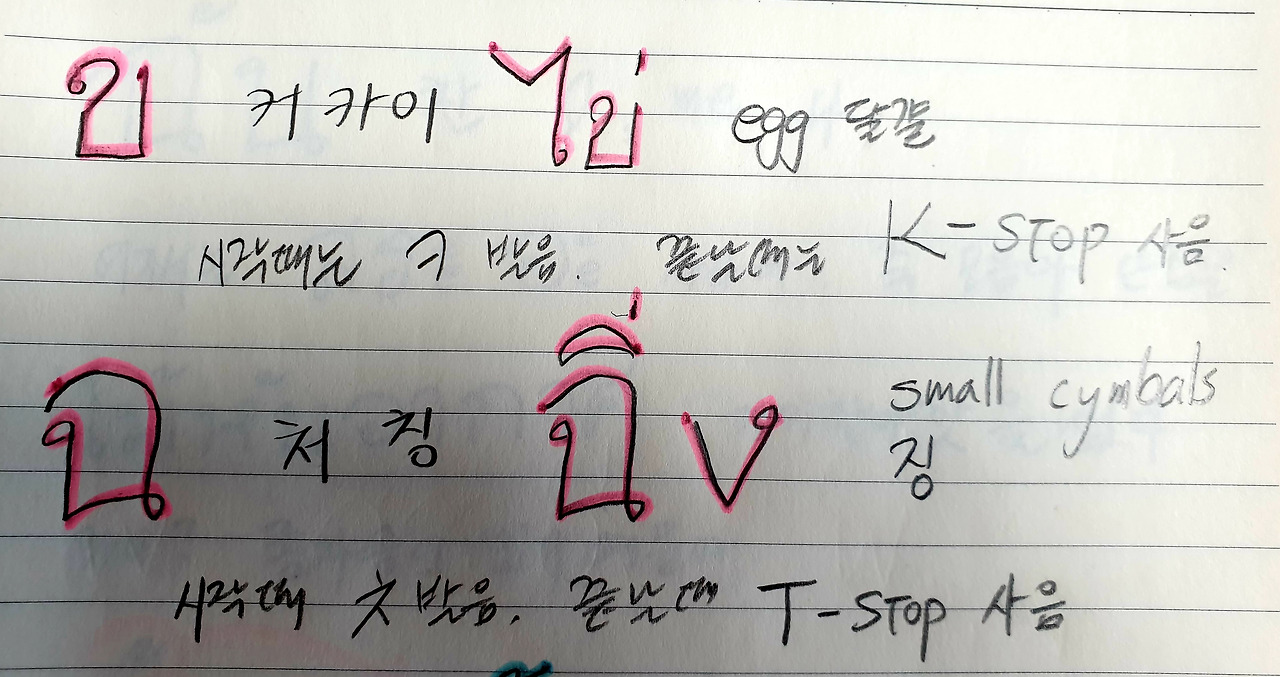 ข 커 카이 ไข่ egg 달걀
시작때는 ㅋ 발음. 끝날때는 K-STOP 사음.
ฉ 처 칭 ฉิ่ง small cymbals
징
시작때 ㅊ 발음. 끝날때 T-STOP 사음